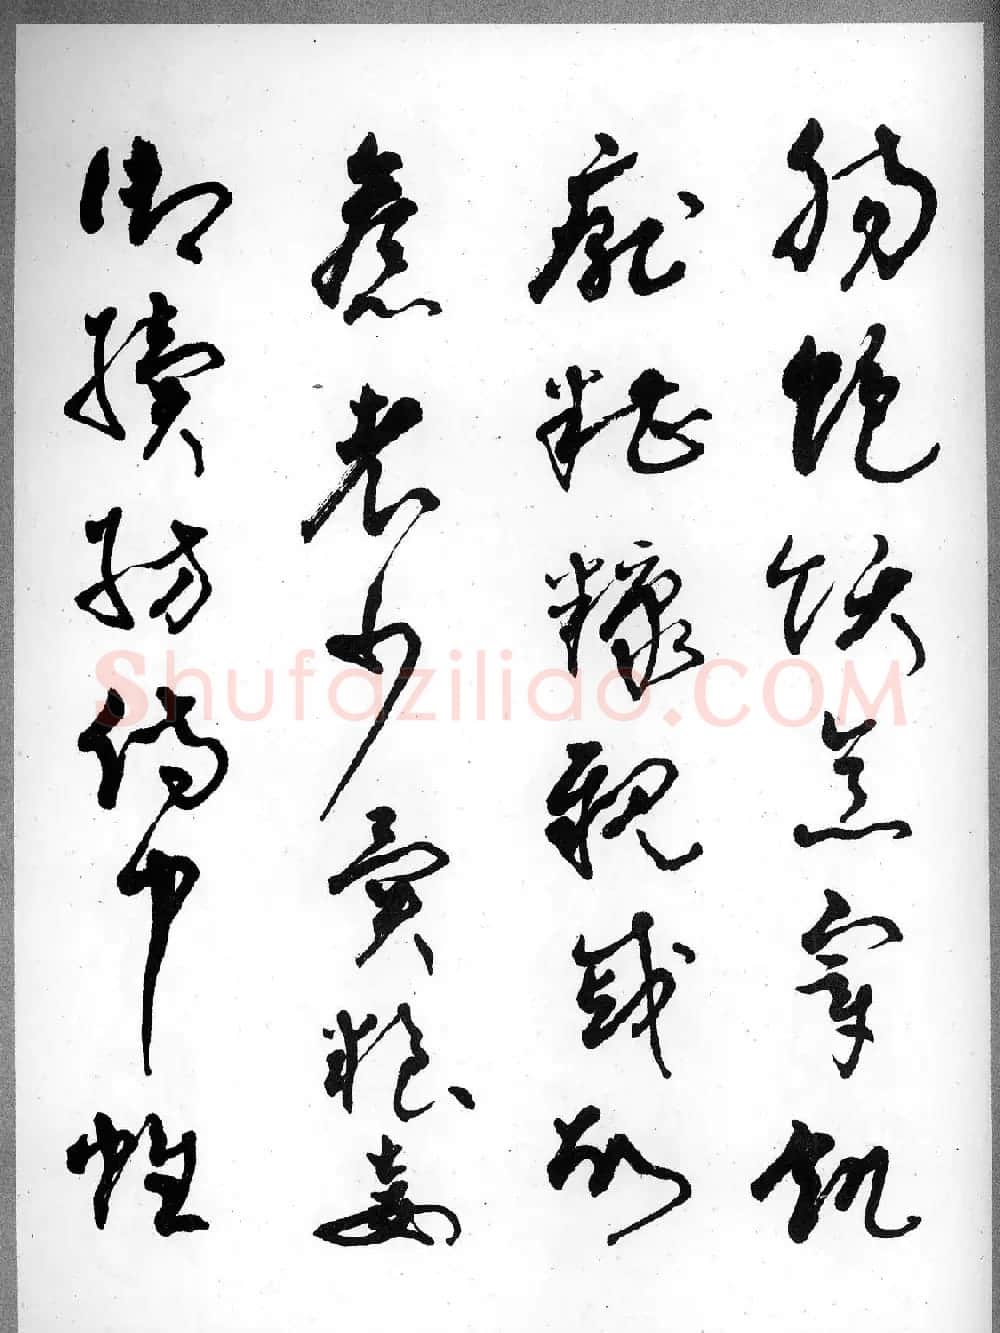 腸飽飫烹宰飢
厭糟糠親戚故
舊老少異糧妾
御績紡侍巾帷
Shufazilido.COM